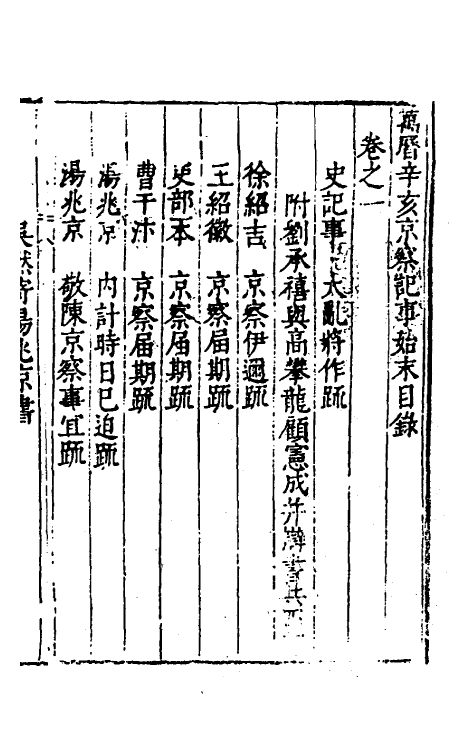 萬曆辛亥京察記事始末目錄
卷之一
史記事 大亂將作疏
附劉承禧與高攀龍顧憲成并辯書共
徐紹吉 京察伊邇疏
王紹徽 京察届期疏
吏部本 京察届期疏
曹于汴 京察届期疏
湯兆京 内計時日已迫疏
湯兆京 敬陳京察事宜疏
寄湯兆京書